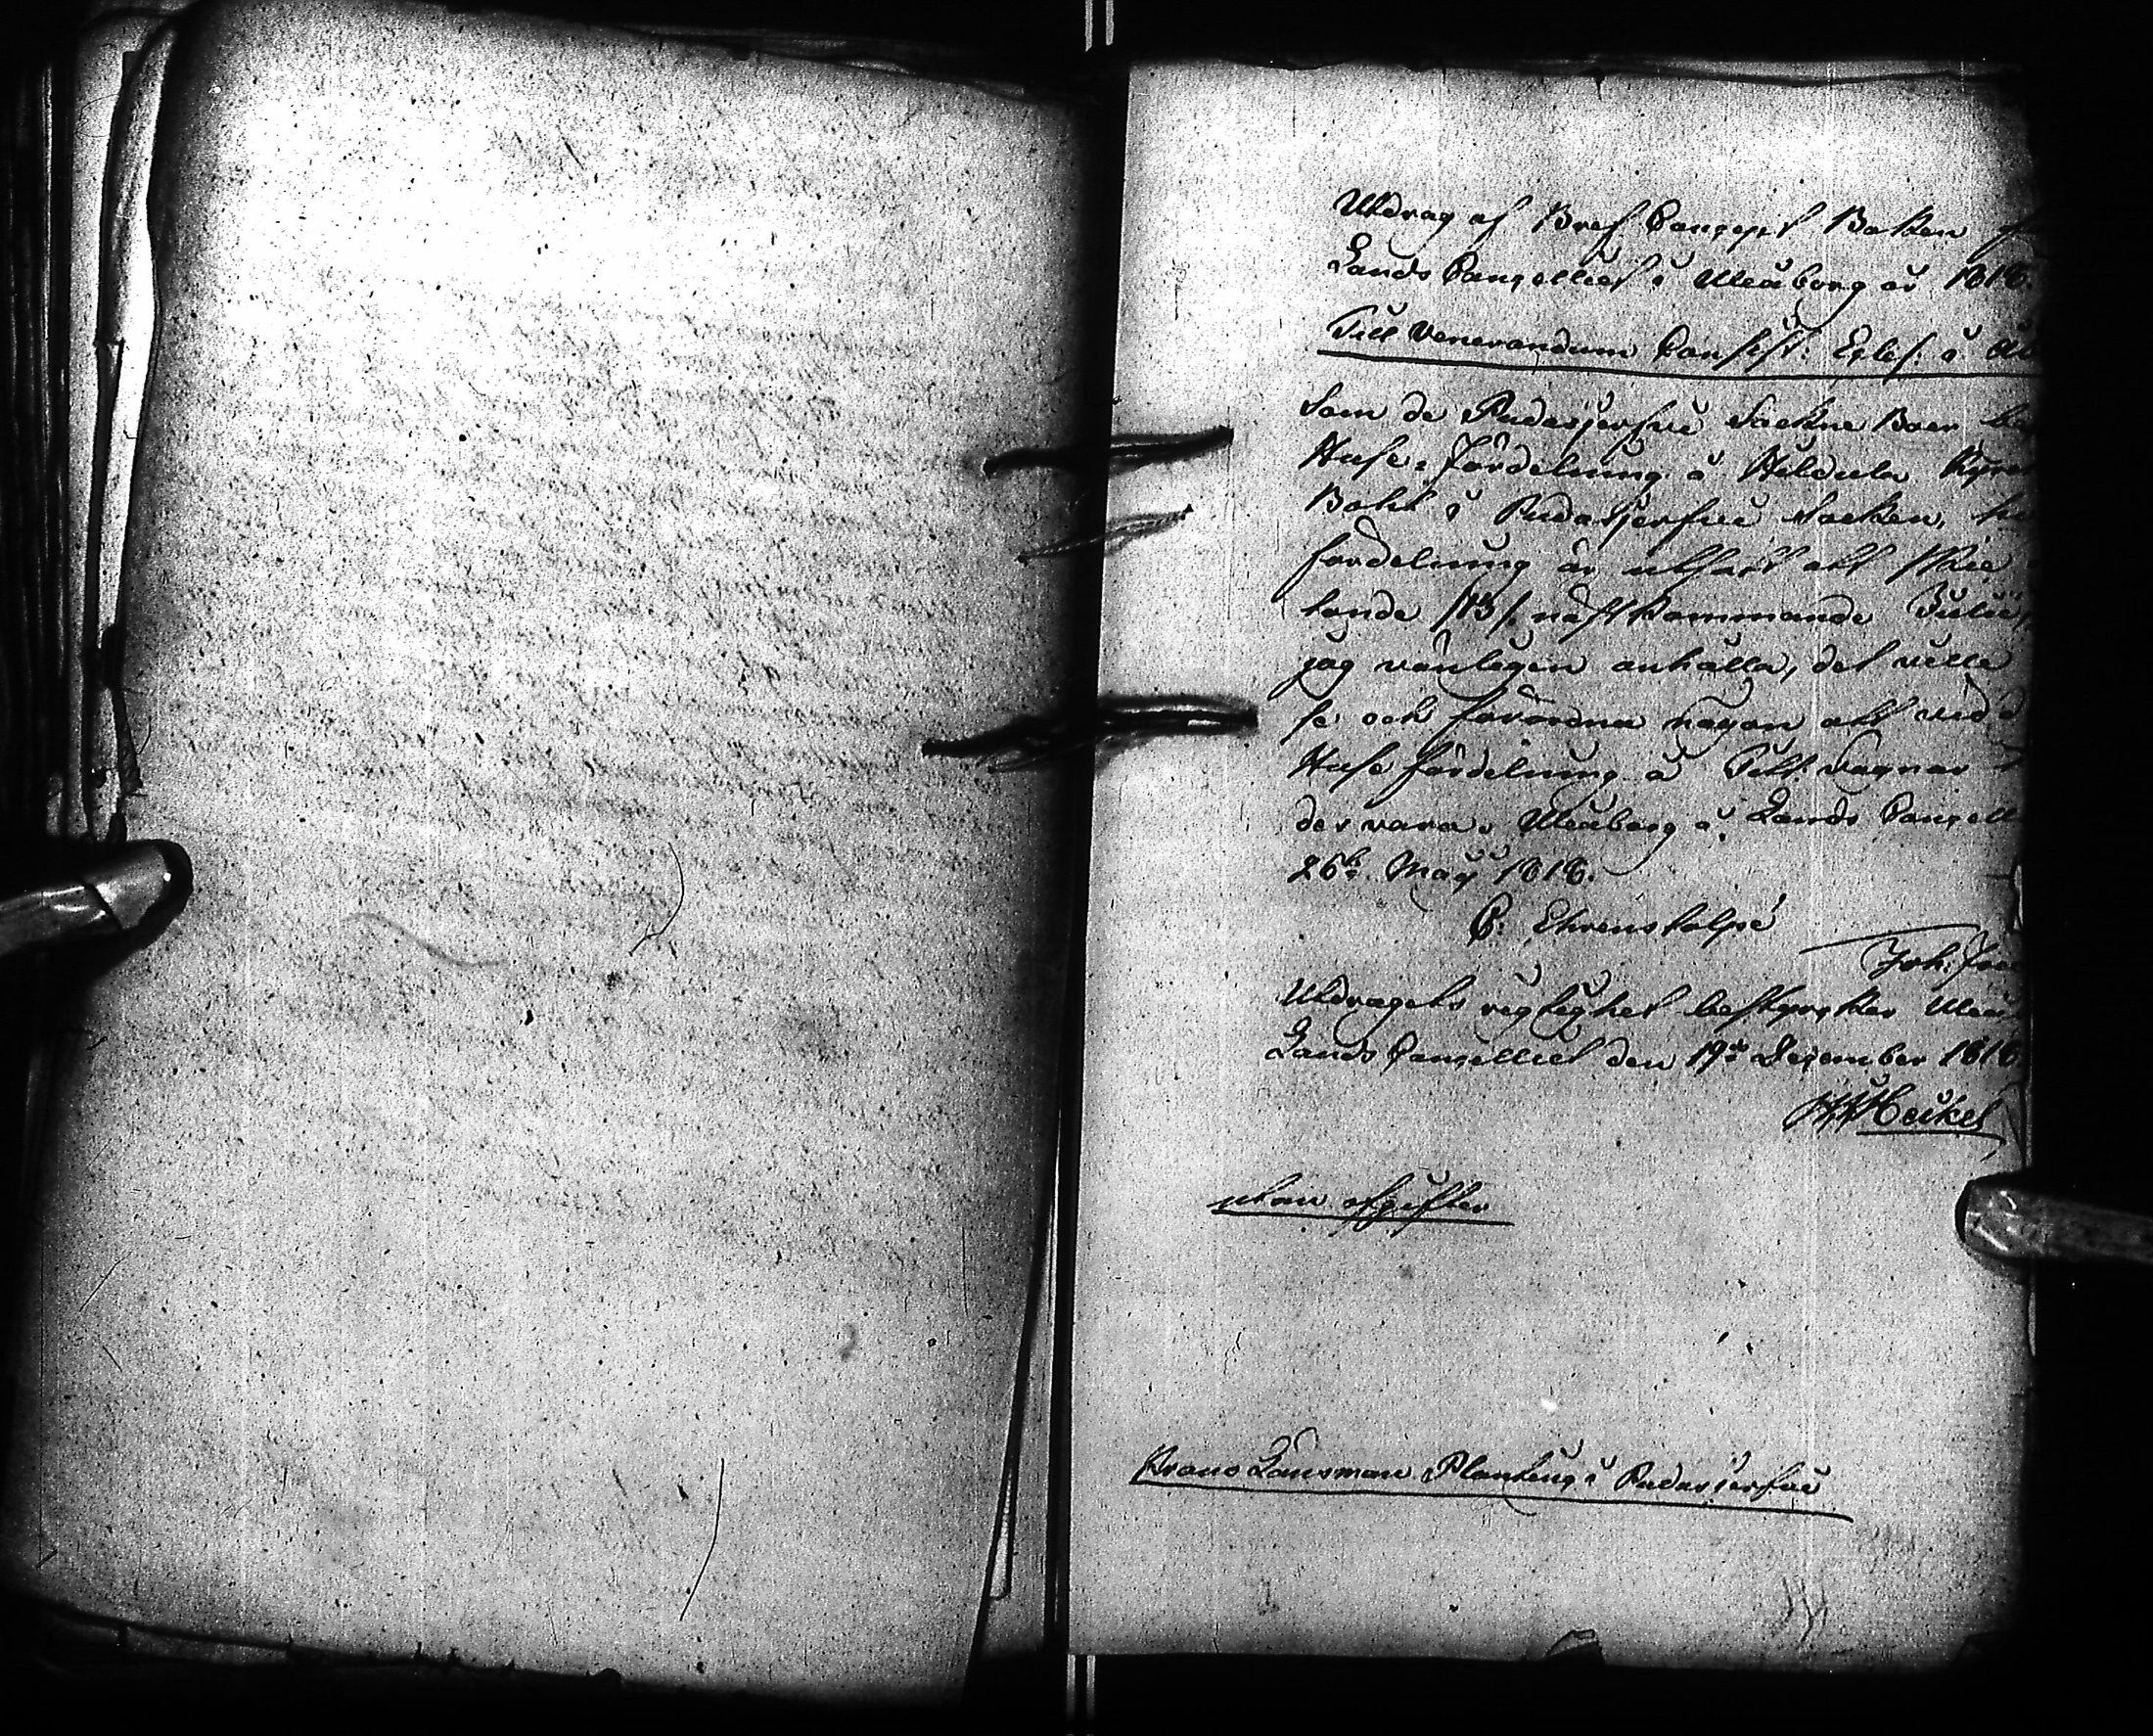 Utdrag af Bref Concept Boken f
Lands Cancelliet i Uleåborg år 1818.
Till Venerandum Consist: Eccles: i Åb
Som de Pudasjerfvi Sockne Boer
Huse-fördelning å Kyrko
Bohl i Pudasjerfvi Socken, hv
fördelning är utsatt att ske
tonde /13/ nästkommande Julii,
jag vänligen anhålla, det ville
se och förordna någon att vid
Huse fördelning å Vagnar
der vara. Uleåborg å Lands Cancell
26te May 1818.
C: Ehrenstolpe
Joh:
Utdragets rigtighet bestyrcker Uleå
Lands Cancelliet den 19de December 1818
HHeikel
utan afgifter
Krono Länsman Planting i Pudasjerfvi